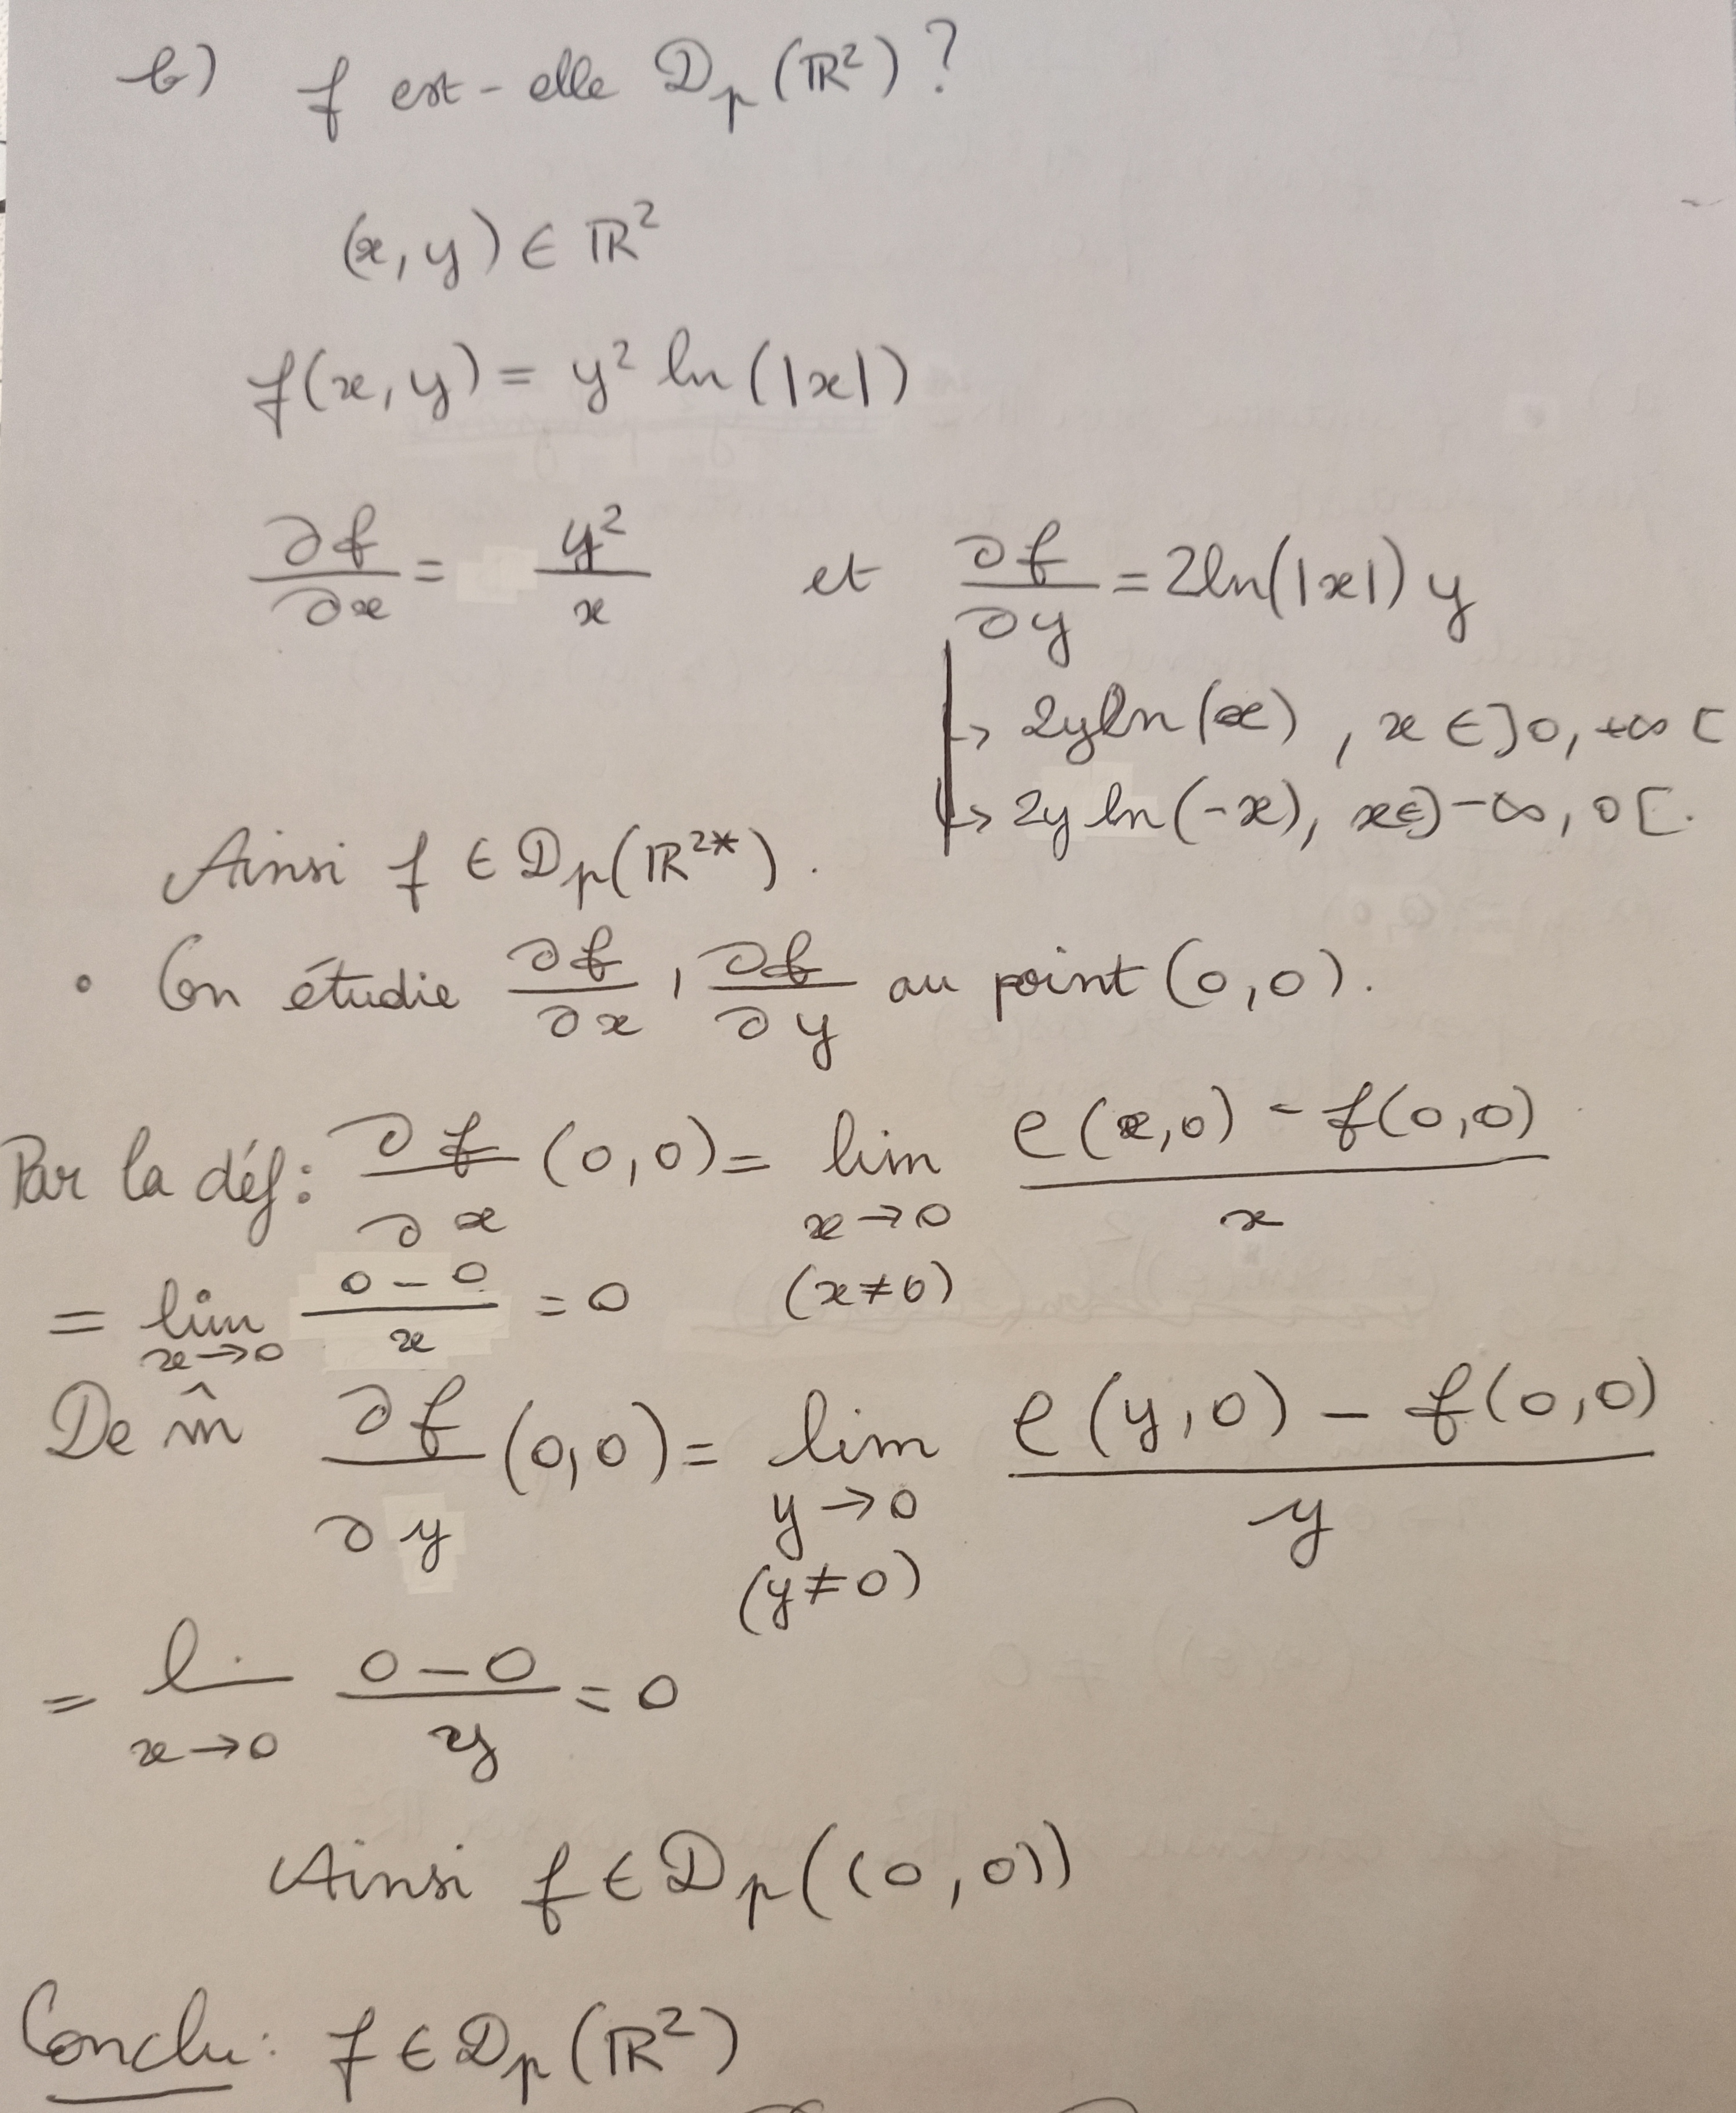 b) f est-elle 𝒟p (ℝ²) ?
(x, y) ∈ ℝ²
f(x, y) = y² ln(|x|)
∂f/∂x = y²/x et ∂f/∂y = 2ln(|x|) y
↳ 2yln(x), x ∈ ]0, +∞[
↳ 2y ln(-x), x∈]-∞, 0[.
Ainsi f ∈ 𝒟p(ℝ²*).
• On étudie ∂f/∂x, ∂f/∂y au point (0,0).
Par la déf: ∂f/∂x (0,0) = lim x→0 (x≠0) (e(x,0) - f(0,0))/x
= lim x→0 (0-0)/x = 0
De m̂ ∂f/∂y (0,0) = lim y→0 (y≠0) (e(y,0) - f(0,0))/y
= l. x→0 (0-0)/y = 0
Ainsi f ∈ 𝒟p((0,0))
Conclu: f ∈ 𝒟p(ℝ²)